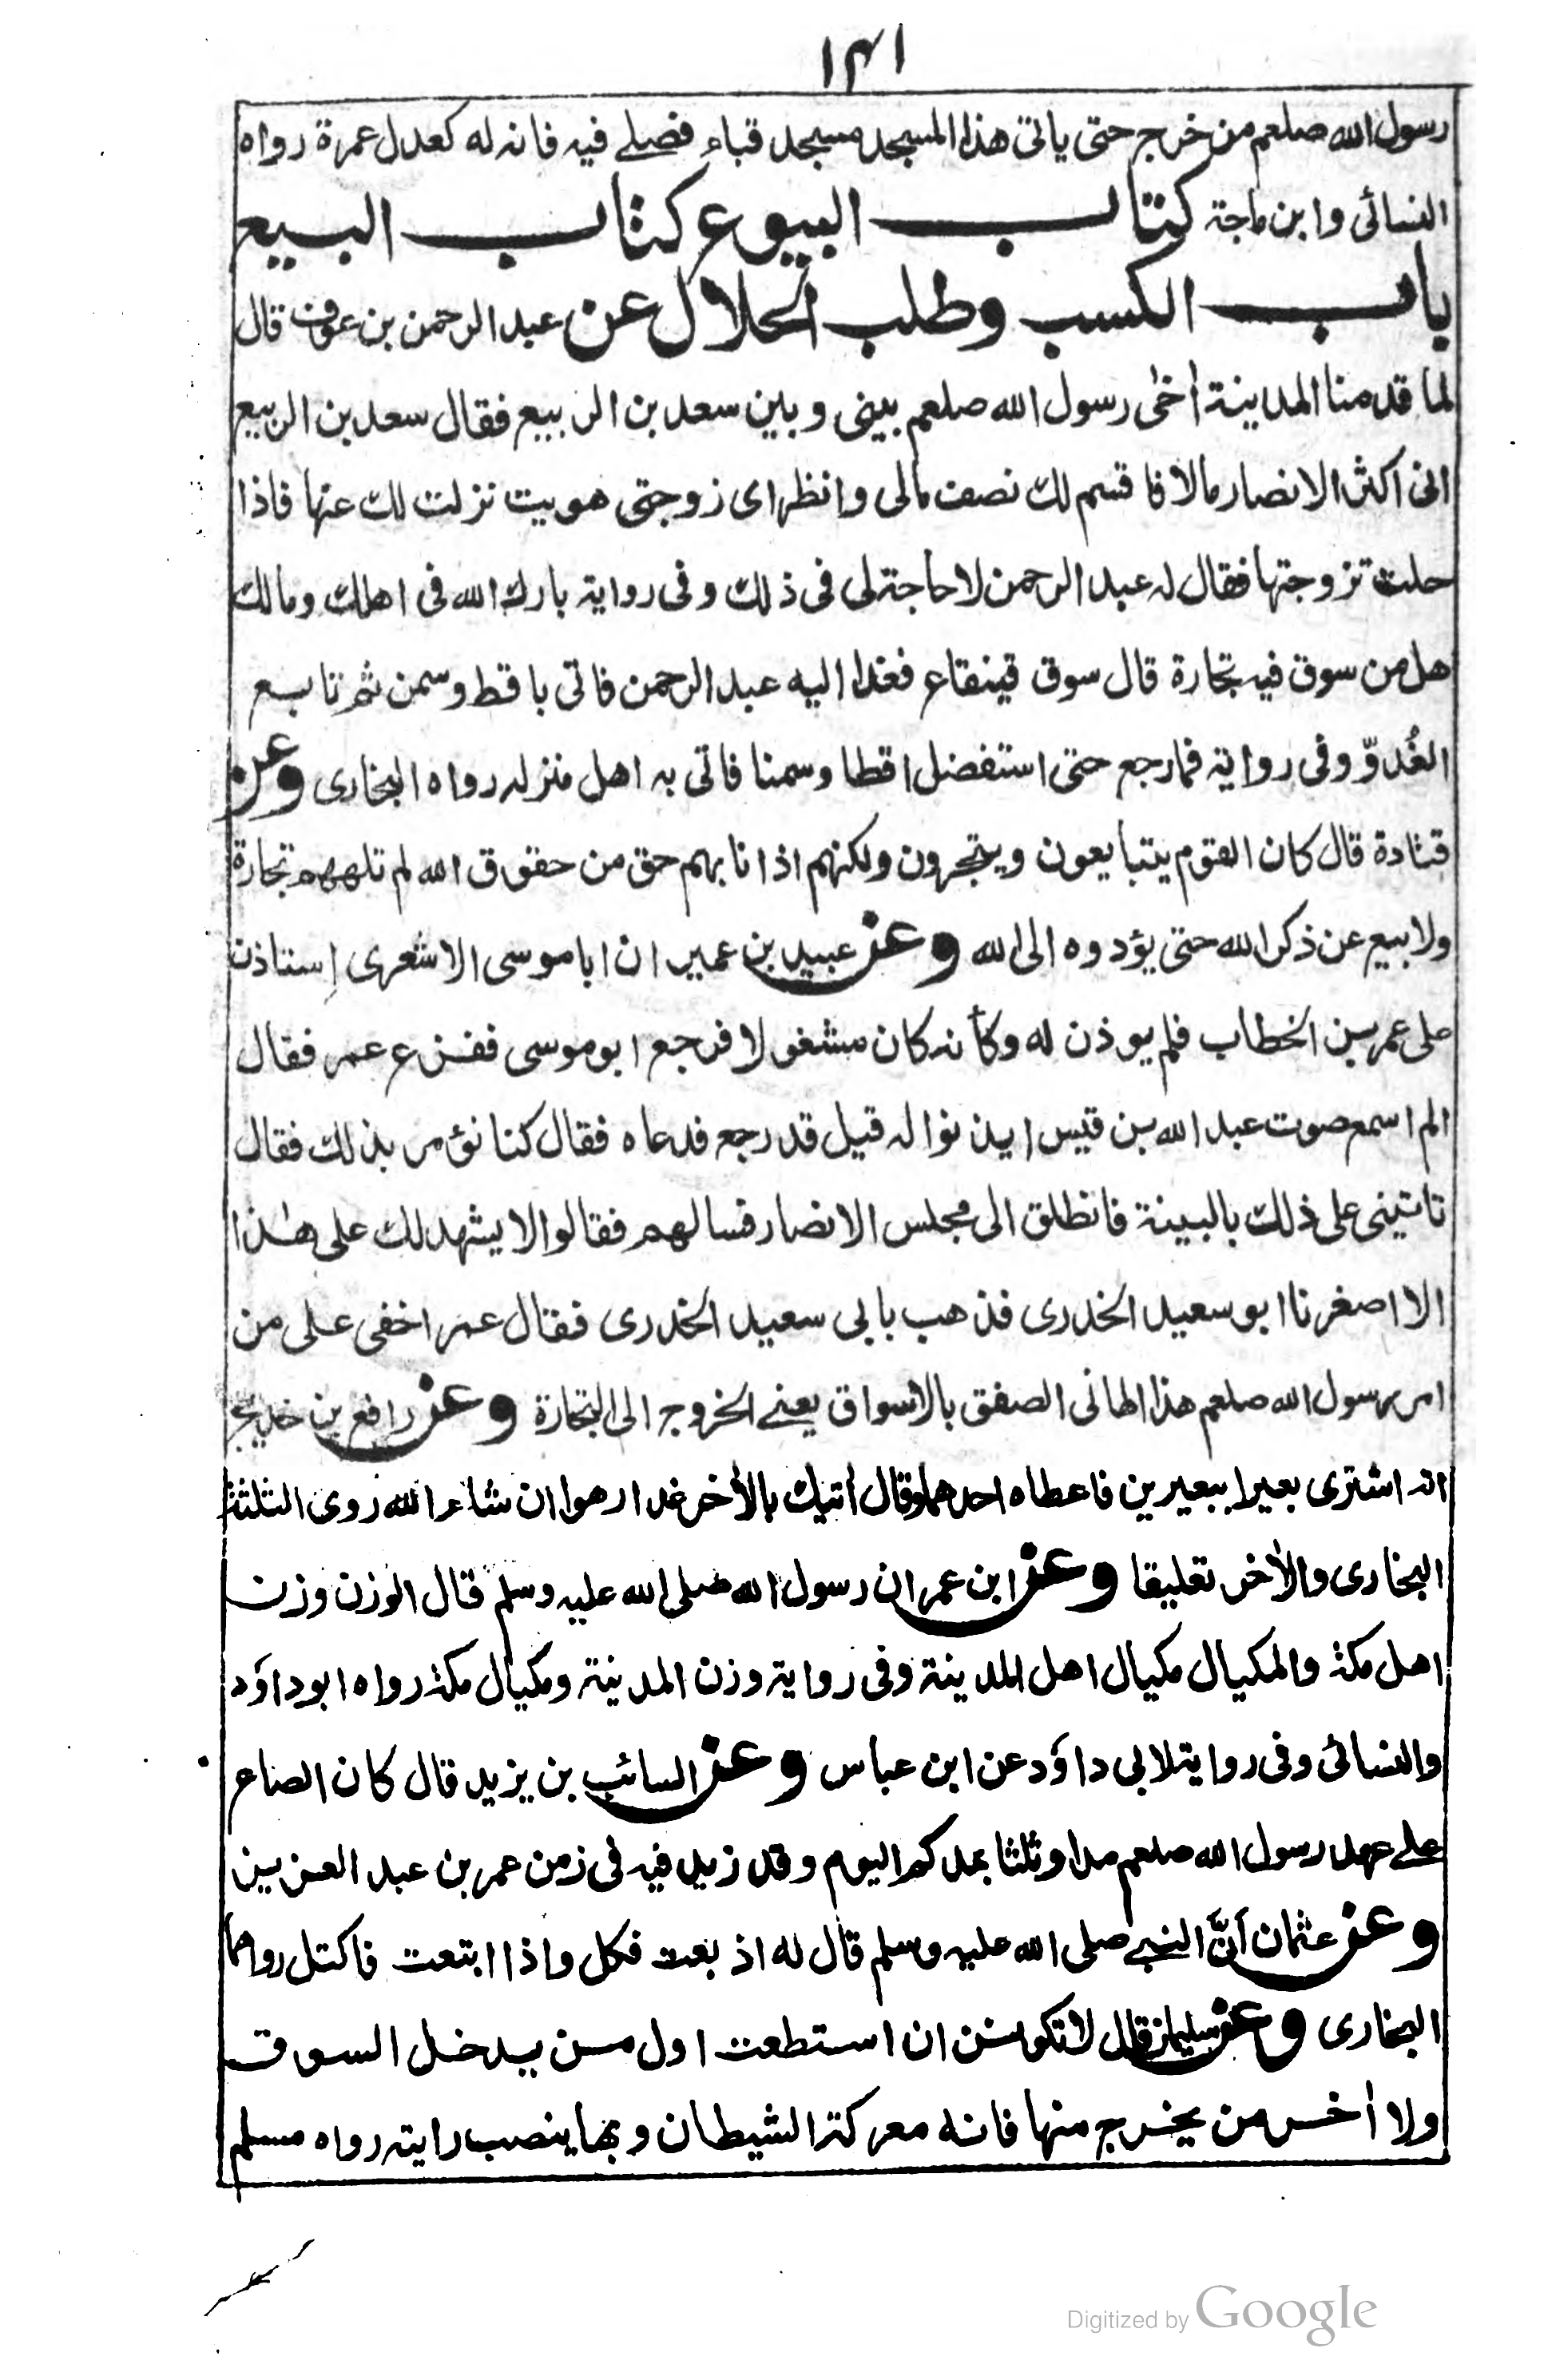 ١٤١
رسول الله صلعم من خرج حتى ياتى هذا المسجد مسجد قباء فصلے فيه فانه له كعدل عمرة رواه
النسائى وابن ماجة كتاب البيوع كتاب البيع
باب الكسب وطلب الحلال عن عبد الرحمن بن عوف قال
لما قدمنا المدينة اٰخٰى رسول الله صلعم بينى وبين سعد بن الربيع فقال سعد بن الربيع
انى اكثر الانصار مالا فاقسم لك نصف مالى وانظر اى زوجتى هويت نزلت لك عنها فاذا
حلت تزوجتها فقال له عبد الرحمن لا حاجة لى فى ذلك وفى رواية بارك الله فى اهلك ومالك
هل من سوق فيه تجارة قال سوق قينقاع فغدا اليه عبد الرحمن فاتى باقط وسمن ثم تابع
الغُدوّ وفى رواية فمارجع حتى استفضل اقطا وسمنا فاتى به اهل منزله رواه البخارى وعن
قتادة قال كان القوم يتبايعون ويتجرون ولكنهم اذا نابهم حق من حقوق الله لم تلههم تجارة
ولا بيع عن ذكر الله حتى يؤدوه الى الله وعن عبيد بن عمير ان ابا موسى الاشعرى إستاذن
على عمر بن الخطاب فلم يوذن له وكأنه كان مشغولا فرجع ابو موسى ففزع عمر فقال
الم اسمع صوت عبد الله بن قيس ايذنوا له قيل قد رجع فدعاه فقال كنا نؤمر بذلك فقال
تاتينى على ذلك بالبينة فانطلق الى مجلس الانصار فسالهم فقالوا لا يشهد لك على هٰذا
الا اصغرنا ابو سعيد الخدرى فذهب بابى سعيد الخدرى فقال عمر اخفى على من
امر رسول الله صلعم هذا الهانى الصفق بالاسواق يعنے الخروج الى التجارة وعن رافع بن خديج
انه اشترى بعيرا ببعيرين فاعطاه احدهما وقال أتيك بالأخر غدا رهوا ان شاء الله روى الثلثة
البخارى والأخر تعليقا وعن ابن عمر ان رسول الله صلى الله عليه وسلم قال الوزن وزن
اهل مكة والمكيال مكيال اهل المدينة وفى رواية وزن المدينة ومكيال مكة رواه ابو داؤد
والنسائى وفى رواية لابى داؤد عن ابن عباس وعن السائب بن يزيد قال كان الصاع
علے عهد رسول الله صلعم مدا وثلثا بمدكم اليوم وقد زيد فيه فى زمن عمر بن عبد العزيز
وعن عثمان أنَّ النبے صلى الله عليه وسلم قال له اذ بعت فكل واذا ابتعت فاكتل رواهما
البخارى وعن سليمان قال لا تكونن ان استطعت اول من يدخل السوق
ولا اٰخر من يخرج منها فانه معركة الشيطان وبها ينصب رايته رواه مسلم
Digitized by Google